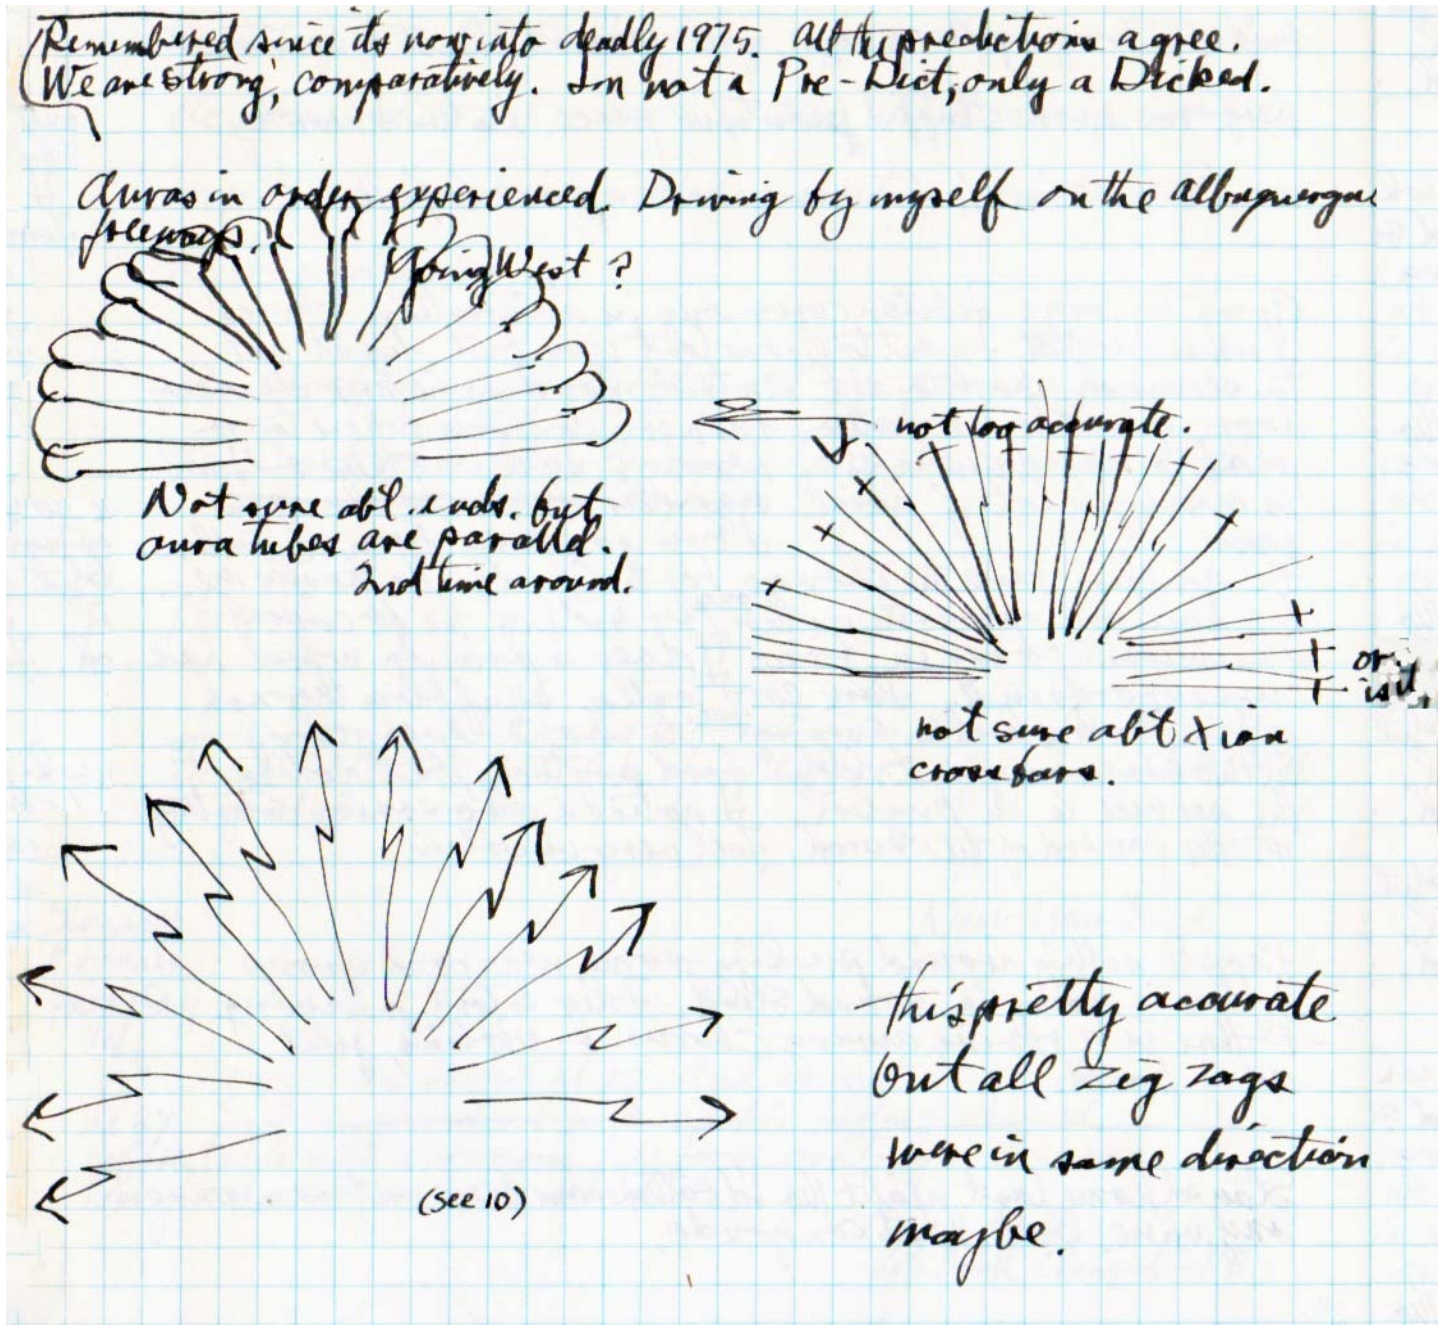 Remembered since its now into deadly 1975. All the predictions agree.
We are strong, comparatively. Im not a Pre-Dict, only a Dicked.
Auras in order experienced. Driving by myself on the Albuquerque
freeways. Going West?
not too accurate.
Not sure abt. ends. but
aura tubes are parallel.
2nd time around.
or
is it
not sure abt X ion
crossbars.
this pretty accurate
but all zig zags
were in same direction
maybe.
(see 10)